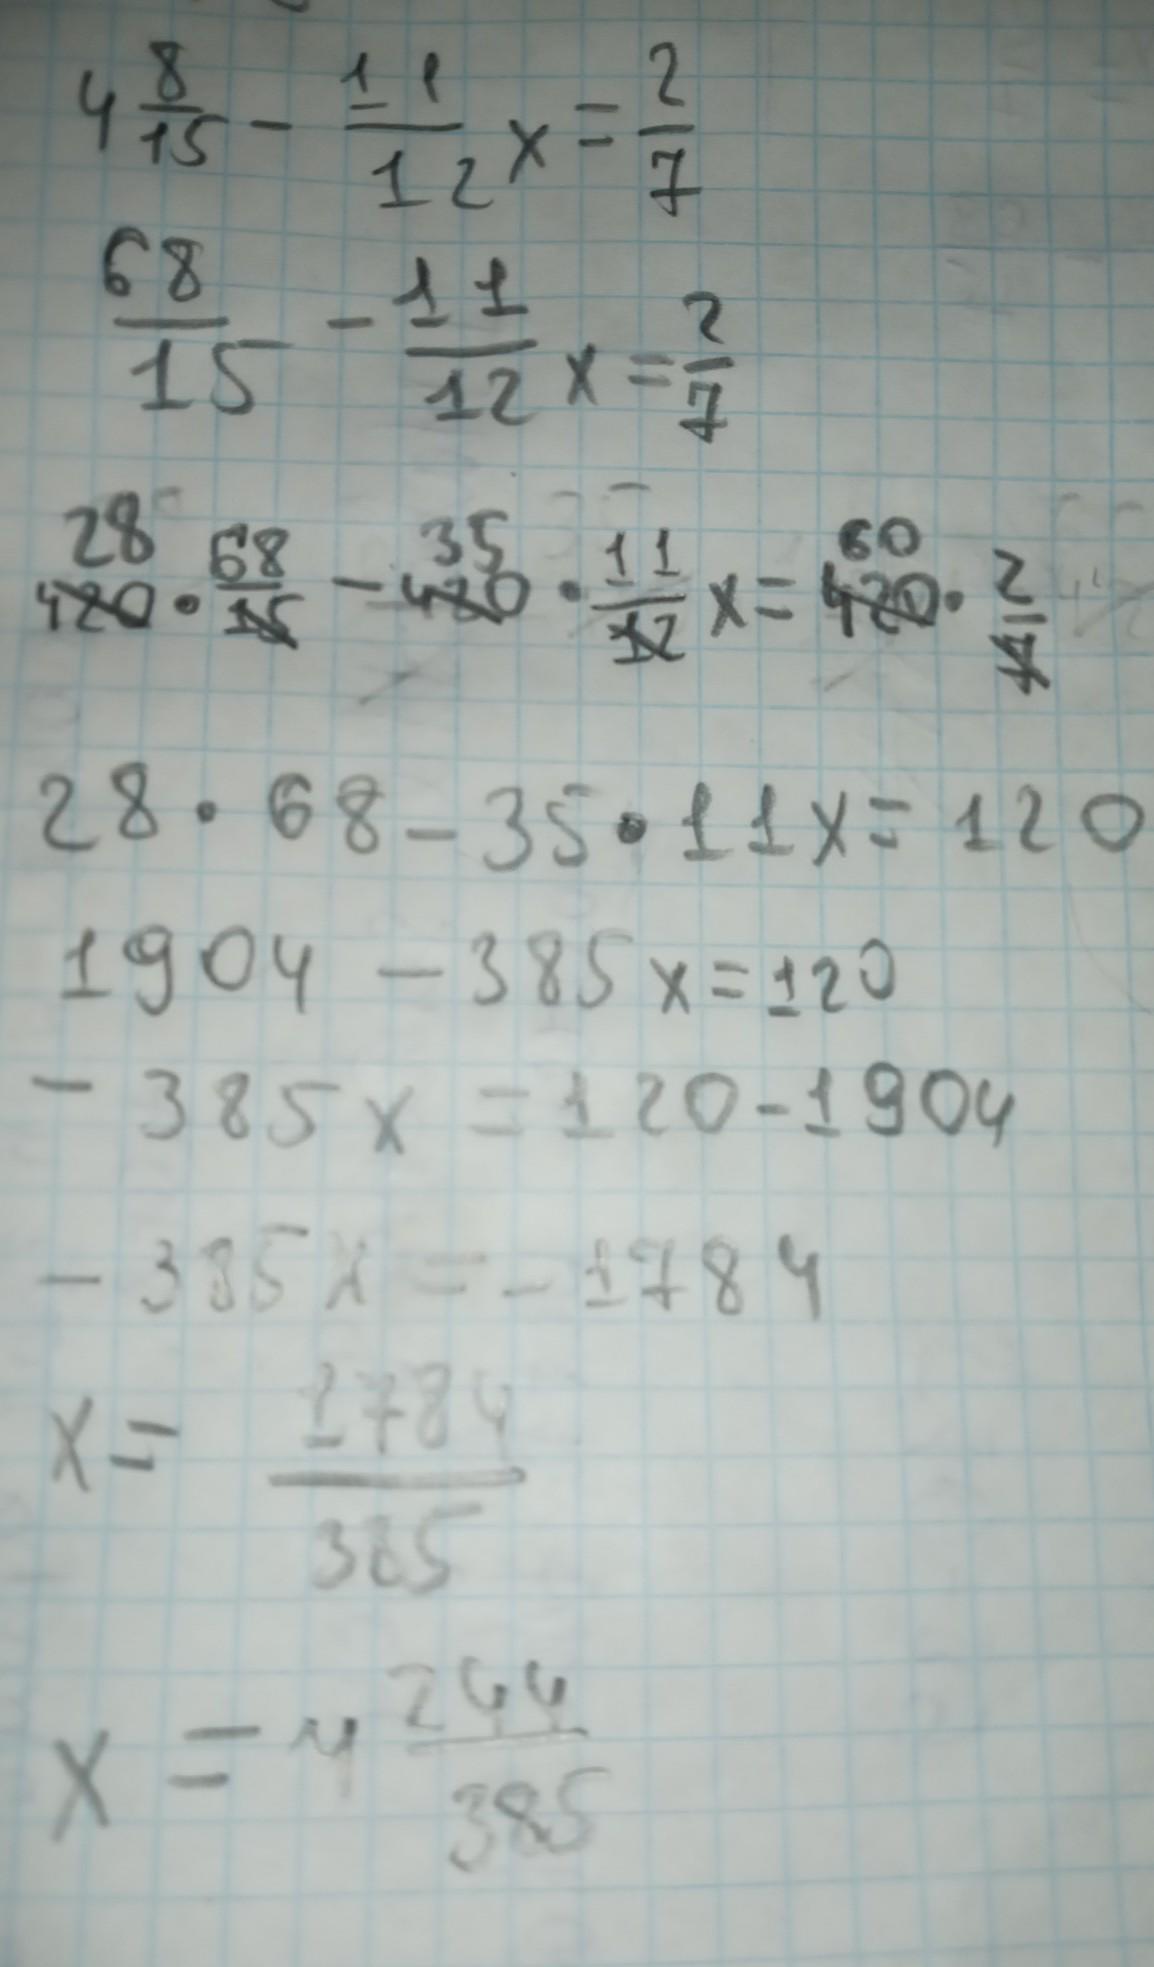 4 8/15 - 11/12 x = 2/7
68/15 - 11/12 x = 2/7
28 35 60
420 · 68/15 - 420 · 11/12 x = 420 · 2/7
28 · 68 - 35 · 11x = 120
1904 - 385x = 120
- 385x = 120 - 1904
- 385x = - 1784
x = 1784/385
x = 4 244/385